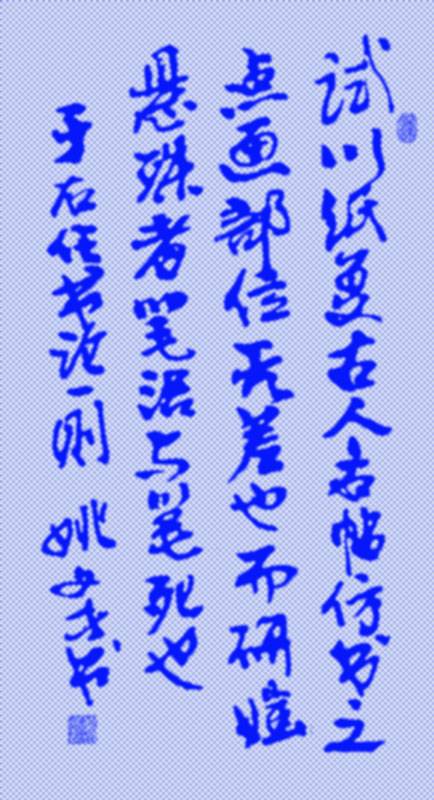 试以纸复古人古帖仿书之
点画部位无差也而研媸
悬殊者笔活与笔死也
于右任书论一则 姚文才书